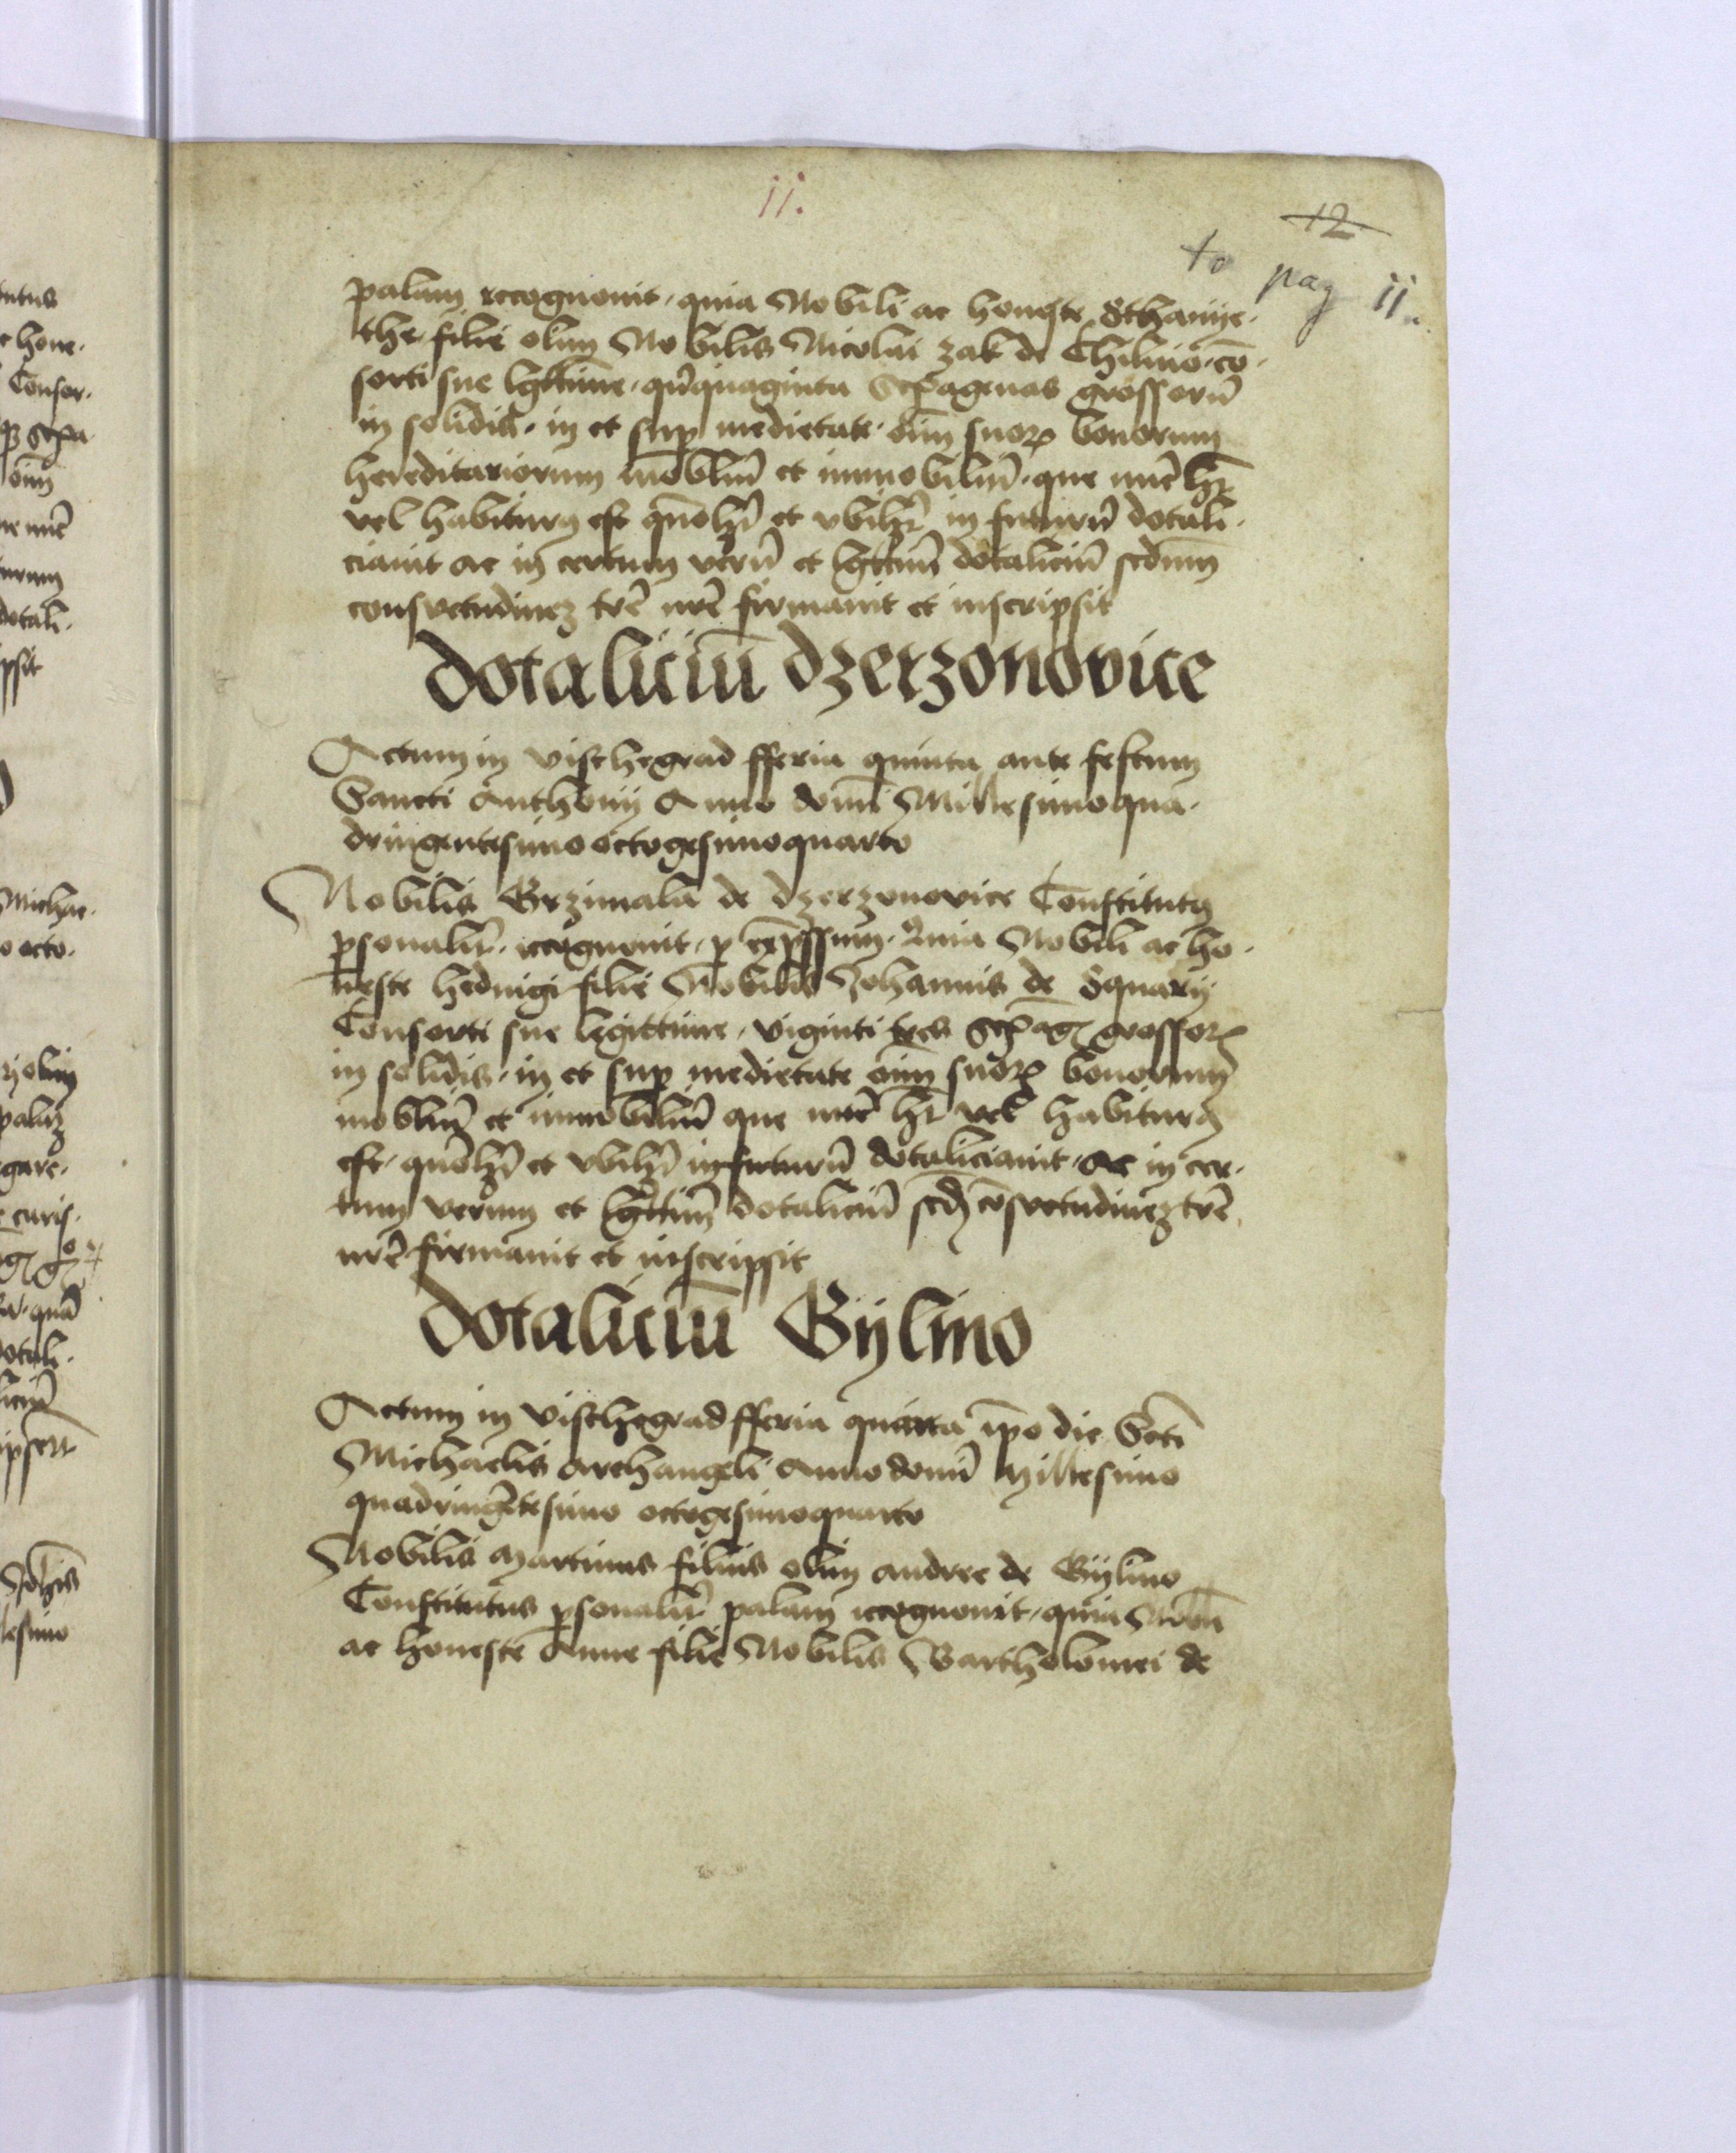 11.
12
to pag 11.
palam recognovit · quia Nobili ac honeste Sthanije·
the filie olim Nobilis Nicolai zak de Chilino · cō·
sorti sue lgittime · qūquaginta Sexagenas grossorū
in solidis · in et sup medietate · oīm suorꝝ bonorum
hereditariorum mobliū et immobiliū · que nūc hꝫ
vel habiturꝯ est quōlꝫ et vbilꝫ in futurū dotali·
ciavit ac in certum verū et lgttimū dotaliciū scdum
consvetudinez trē nrē firmavit et inscripsit
dotaliciū dzerzonovice
Actum in vischegrad fferia quinta ante festum
Sancti Anthonij Anno domī Millesimoqua·
dringentesimo octogesimoquarto
Nobilis Grzimala de dzerzonovice Constitutꝯ
psonalir · recognovit · p expssum · Quia Nobili ac ho·
neste hedvigi filie Nobilis Johannis de Squarij
Consorti sue legittime · viginti tres Sexag grossorꝝ
in solidis · in et sup medietate oīm suorꝝ bonorum
mobliū et immobiliū que nūc hꝫ vel habiturꝯ
est · quōlꝫ et vbilꝫ in futurū dotaliciavit · ac in cer·
tum verum et lgttimū dotaliciū scdm cōsvetudinez trē
nrē firmavit et inscripsit
dotaliciū Gijlino
Actum in vischegrad fferia quarta ipo die Scti
Michaelis archangeli Anno domī Millesimo
quadringētesimo octogesimoquarto
Nobilis Martinus filius olim andree de Gijlino
Constitutus psonalir palam recognovit · quia Nobili
ac honeste Anne filie Nobilis Bartholomei de